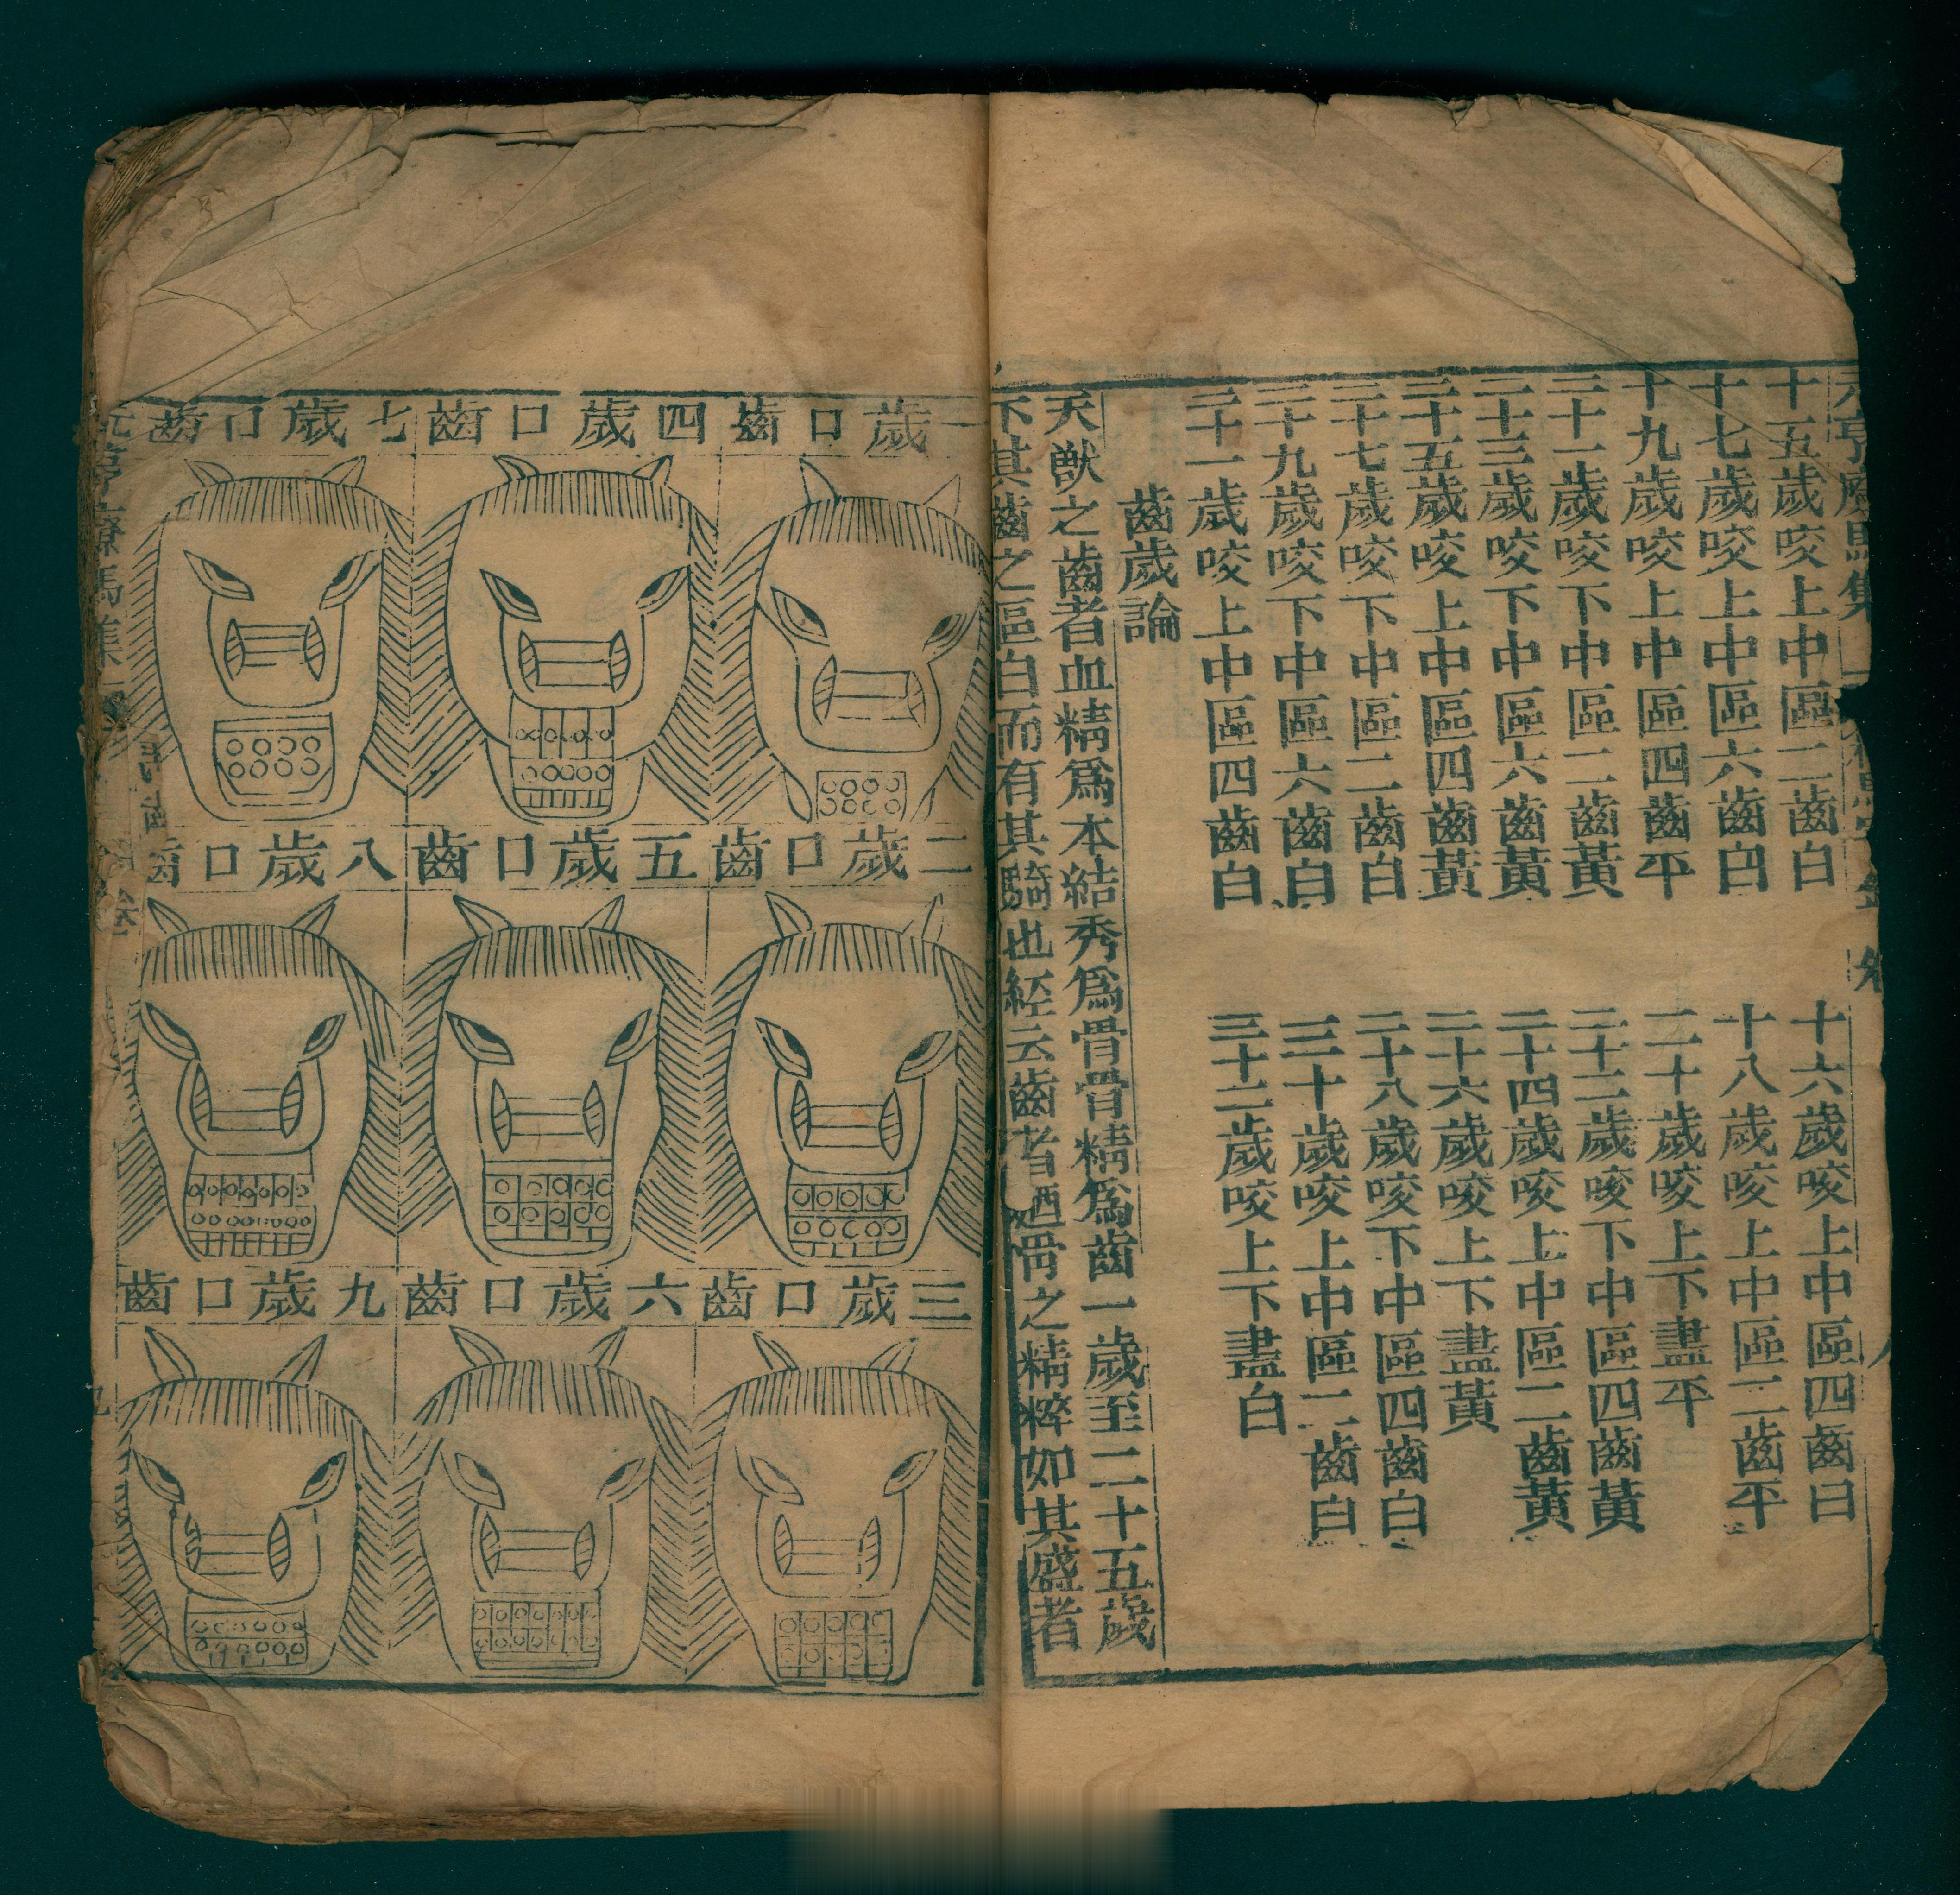 元亨療馬集
十五歲咬上中區二齒白
十六歲咬上中區四齒白
十七歲咬上中區六齒白
十八歲咬上中區二齒平
十九歲咬上中區四齒平
二十歲咬上下盡平
二十一歲咬下中區二齒黃
二十二歲咬下中區四齒黃
二十三歲咬下中區六齒黃
二十四歲咬上中區二齒黃
二十五歲咬上中區四齒黃
二十六歲咬上下盡黃
二十七歲咬下中區二齒白
二十八歲咬下中區四齒白
二十九歲咬下中區六齒白
三十歲咬上中區二齒白
三十一歲咬上中區四齒白
三十二歲咬上下盡白
齒歲論
夭獸之齒者血精爲本結秀爲骨骨精爲齒一歲至二十五歲
下其齒之區白而有其騎也經云齒者廼骨之精粹如其盛者
一歲口齒
二歲口齒
三歲口齒
四歲口齒
五歲口齒
六歲口齒
七歲口齒
八歲口齒
九歲口齒
元亨療馬集
九